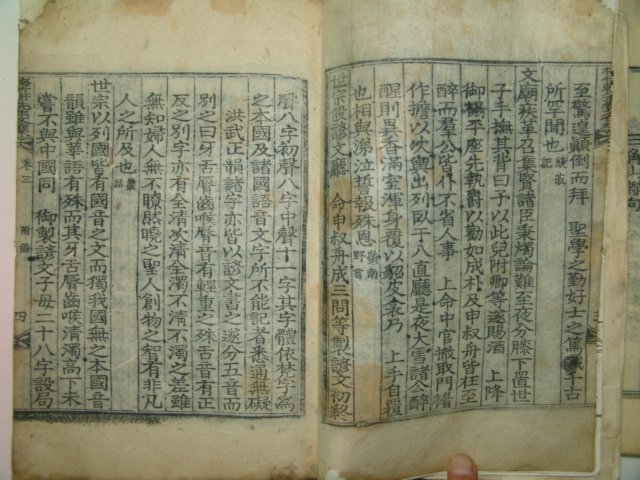 至驚遑顚倒而拜 聖學之勤好士之篤誠千古
所罕聞也 記
文廟疾革召集賢諸臣秉燭論難至夜分膝下置世
子手撫其背曰予以此兒附卿等遂賜酒 上降
御榻平座先執爵以勸如成朴及申叔舟皆在至
醉而羣公皆仆不省人事 上命中官撤取門楣
作擔以次輿出列臥于八直廳是夜大雪諸公醉
醒則異香滿室渾身覆以貂皮裘乃 上手自覆
也相與涕泣誓報殊恩 嶺南野言
世宗設諺文廳 命申叔舟成三問等製諺文初終
聲八字初聲八字中聲十一字其字體依梵字爲
之本國及諸國語音文字所不能記者悉通無礙
洪武正韻諸字亦皆以諺文書之遂分五音而
別之曰牙舌唇齒喉唇音有輕重之殊舌音有正
反之別字亦有全清次清全濁不清不濁之差雖
無知婦人無不瞭然曉之聖人創物之智有非凡
人之所及也 叢話
世宗以列國皆有國音之文而獨我國無之本國音
韻雖與華語有殊而其牙舌唇齒喉清濁高下未
嘗不與中國同 御製諺文子母二十八字設局
卷三 附錄 四